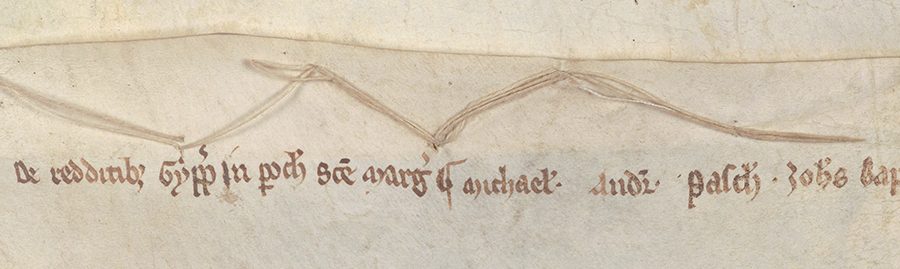 De redditibꝫ Gypp̄ in poch̄ Sc̄e Marg̓ ¶ Michael̓· Andr̓· Pasch̓· Joh̓s Bap